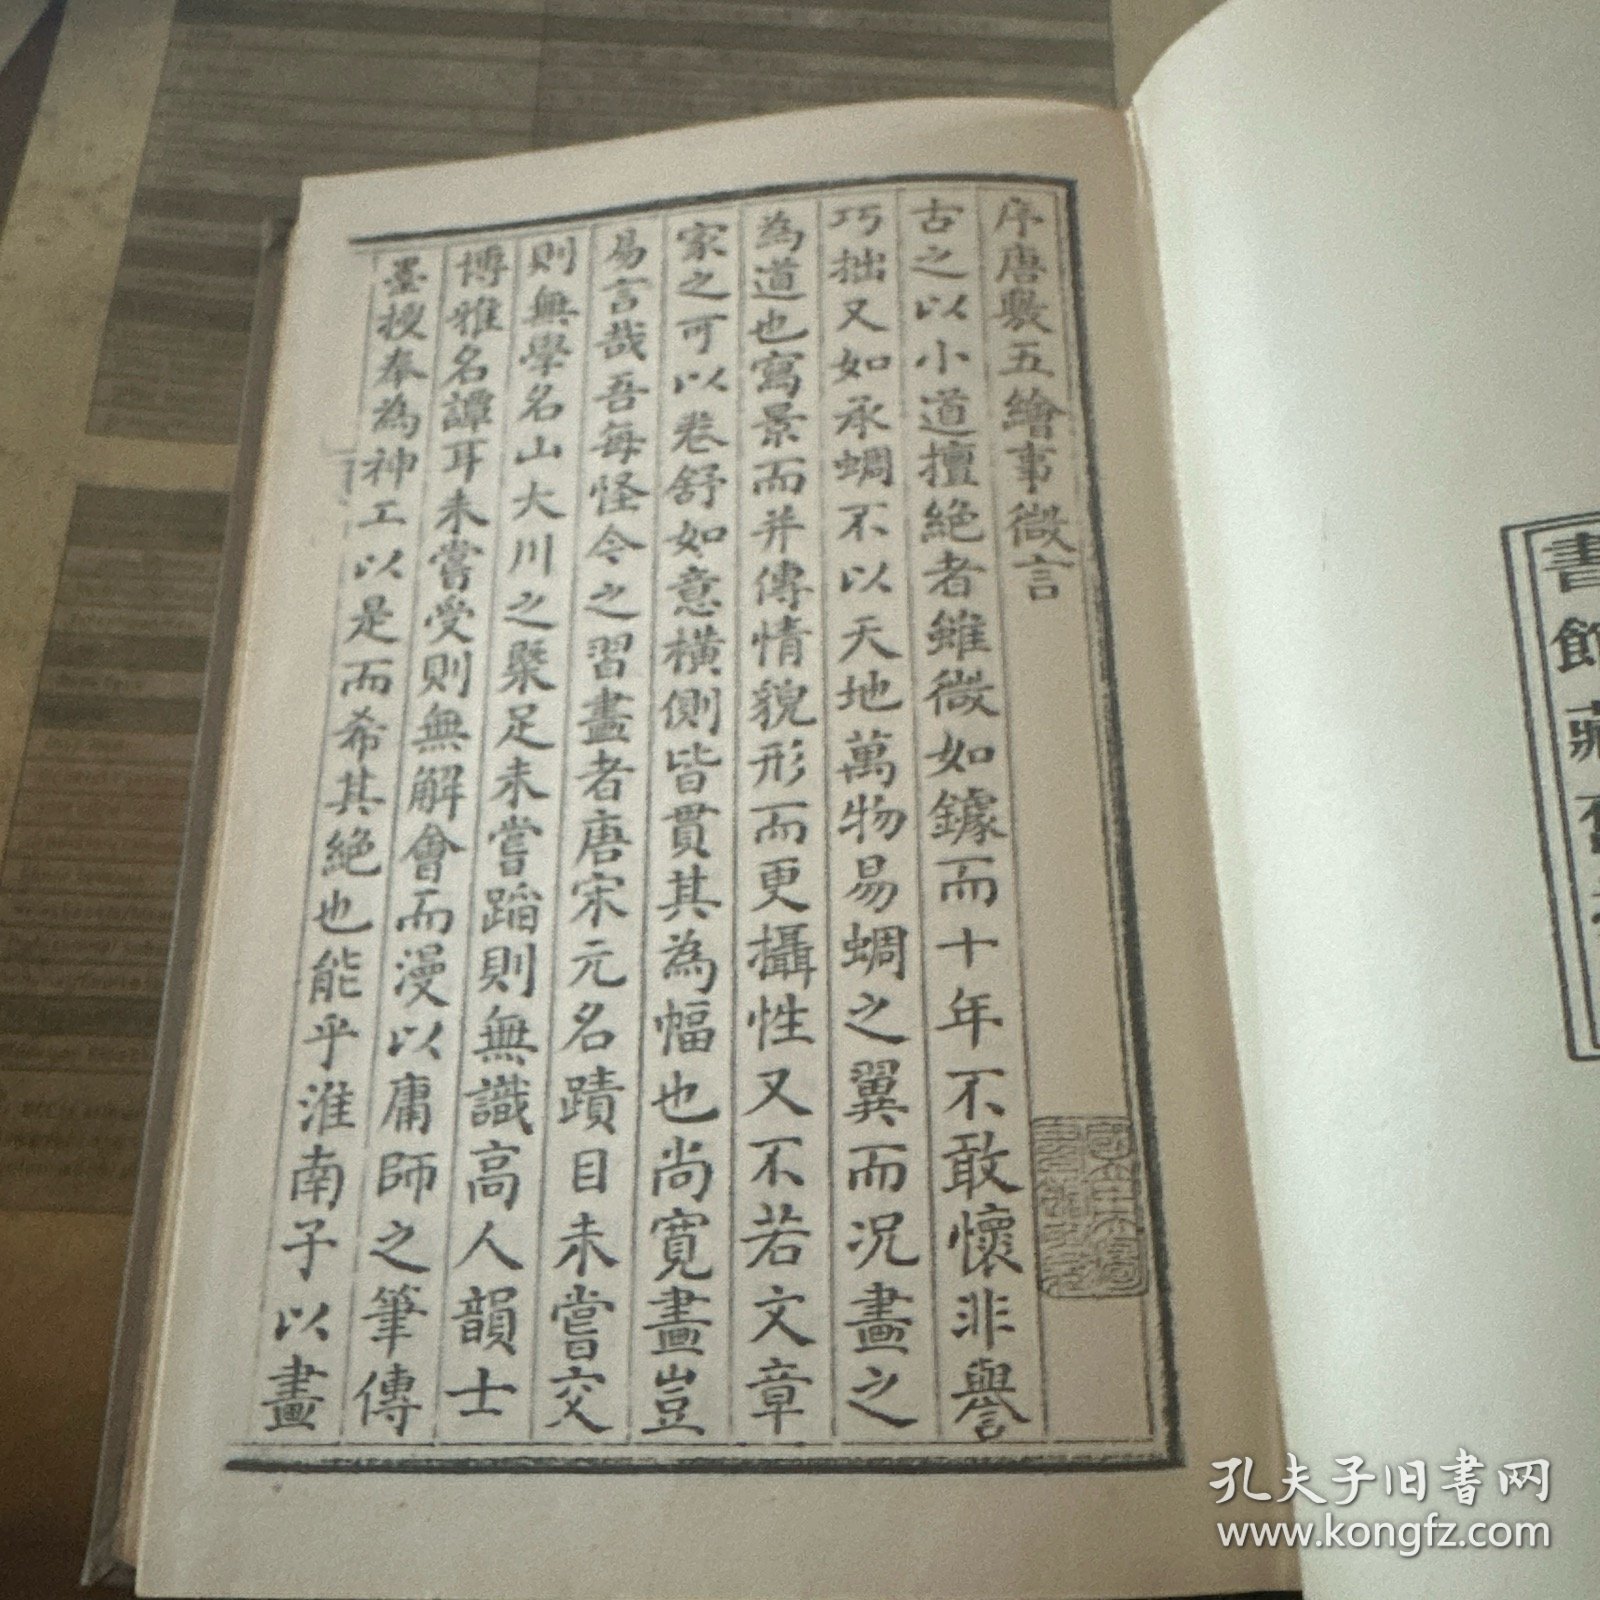 序唐敷五繪事微言
古之以小道擅絕者雖微如鐻而十年不敢懷非譽
巧拙又如承蜩不以天地萬物易蜩之翼而况畫之
為道也寫景而并傳情貌形而更攝性又不若文章
家之可以卷舒如意橫側皆貫其為幅也尚寬畫豈
易言哉吾每怪今之習畫者唐宋元名蹟目未嘗交
則無學名山大川之槩足未嘗蹈則無識高人韻士
博雅名譚耳未嘗受則無解會而漫以庸師之筆傳
墨授奉為神工以是而希其絕也能乎淮南子以畫
書館藏
孔夫子旧书网
www.kongfz.com